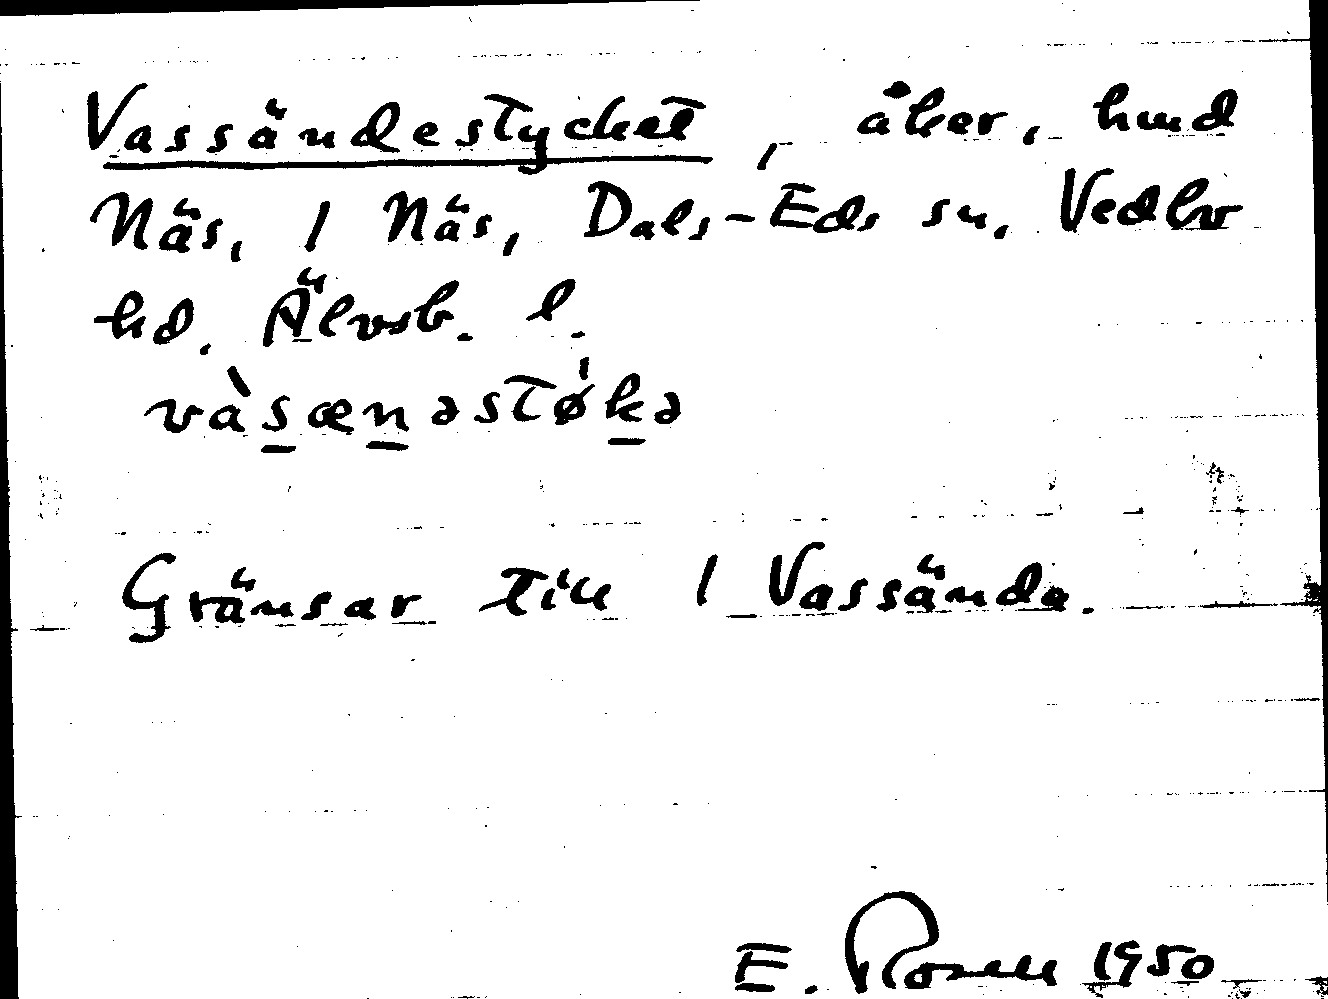 Vassändestycket, åker, hmd
Näs, 1 Näs, Dals-Eds sn, Vedbo
hd. Älvsb. l.
vàsænəstø̍kə
Gränsar till 1 Vassända.
E. Rosell 1950